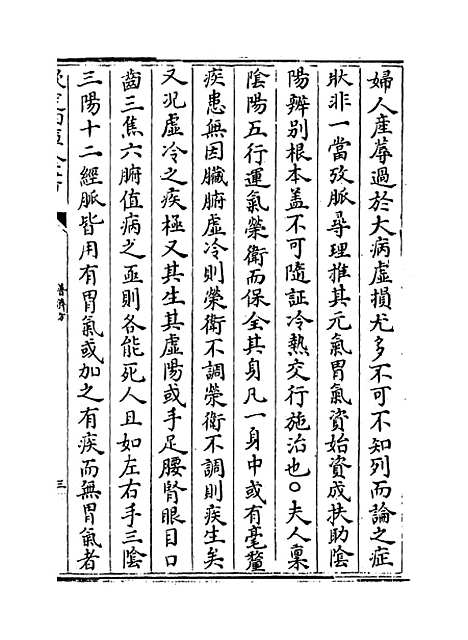 婦人產蓐過於大病虛損尤多不可不知列而論之症
狀非一當攷脈尋理推其元氣胃氣資始資成扶助陰
陽辨别根本盖不可隨証冷熱交行施治也○夫人稟
陰陽五行運氣榮衛而保全其身凡一身中或有毫釐
疾患無因臟腑虛冷則榮衛不調榮衛不調則疾生矣
又况虛冷之疾極又其生其虛陽或手足腰腎眼目口
齒三焦六腑值病之亟則各能死人且如左右手三陰
三陽十二經脈皆用有胃氣或加之有疾而無胃氣者
普濟方
三